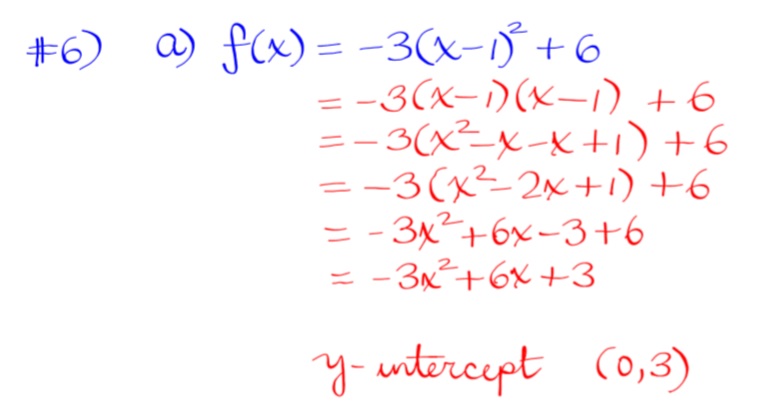 #6) a) f(x) = -3(x-1)² + 6
= -3(x-1)(x-1) + 6
= -3(x²-x-x+1) + 6
= -3(x²-2x+1) + 6
= -3x²+6x-3+6
= -3x²+6x+3
y-intercept (0,3)